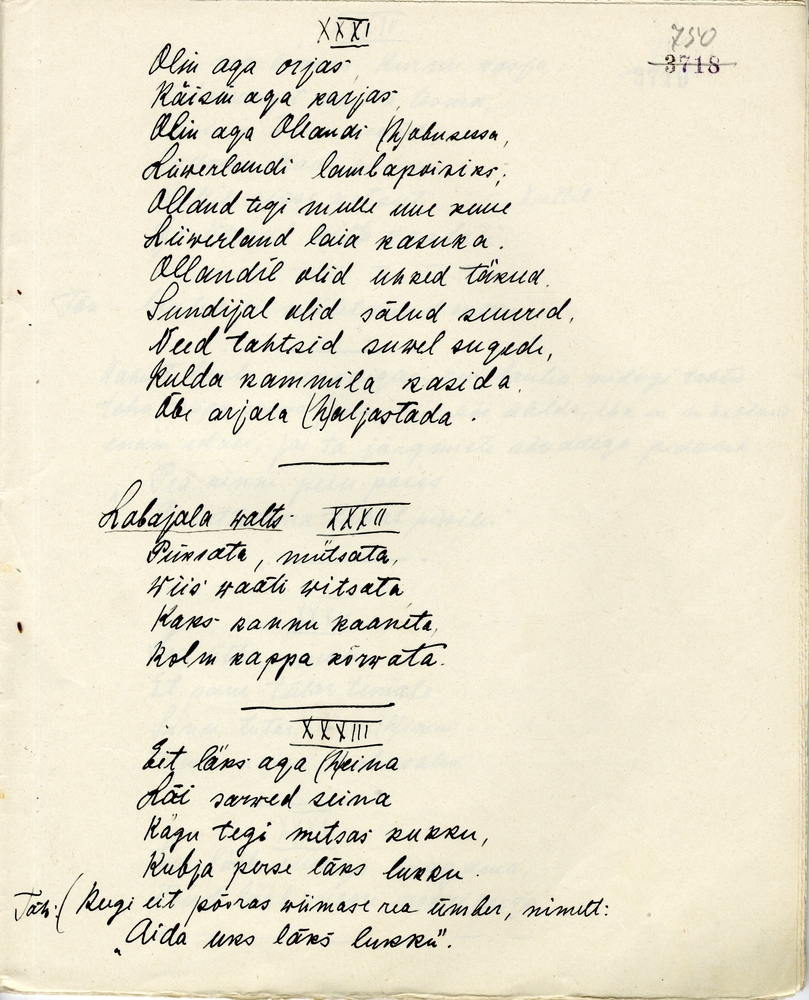 XXXI
750
3718
Olin aga orjas,
Käisin aga karjas,
Olin aga Ollandi (h)obusessa,
Liiwerlandi lambapoisiks;
Olland tegi mulle uue kuue
Liiwerland laia kasuka.
Ollandil olid uhked täkud,
Sundijal olid sälud suured,
Need tahtsid suwel sugeda,
Kulda kammila kasida,
Õbe arjala (h)aljastada.
Labajala walts. XXXII
Püksata, mütsata,
Wiis waati witsata
Kaks kannu kaaneta,
Kolm kappa kõrwata.
XXXIII
Eit läks aga (h)eina
Lõi sarwed seina
Kägu tegi metsas kukku,
Kubja perse läks lukku.
Täh: (Keegi eit pööras wiimase rea ümber, nimelt:
„Aida uks läks lukku".